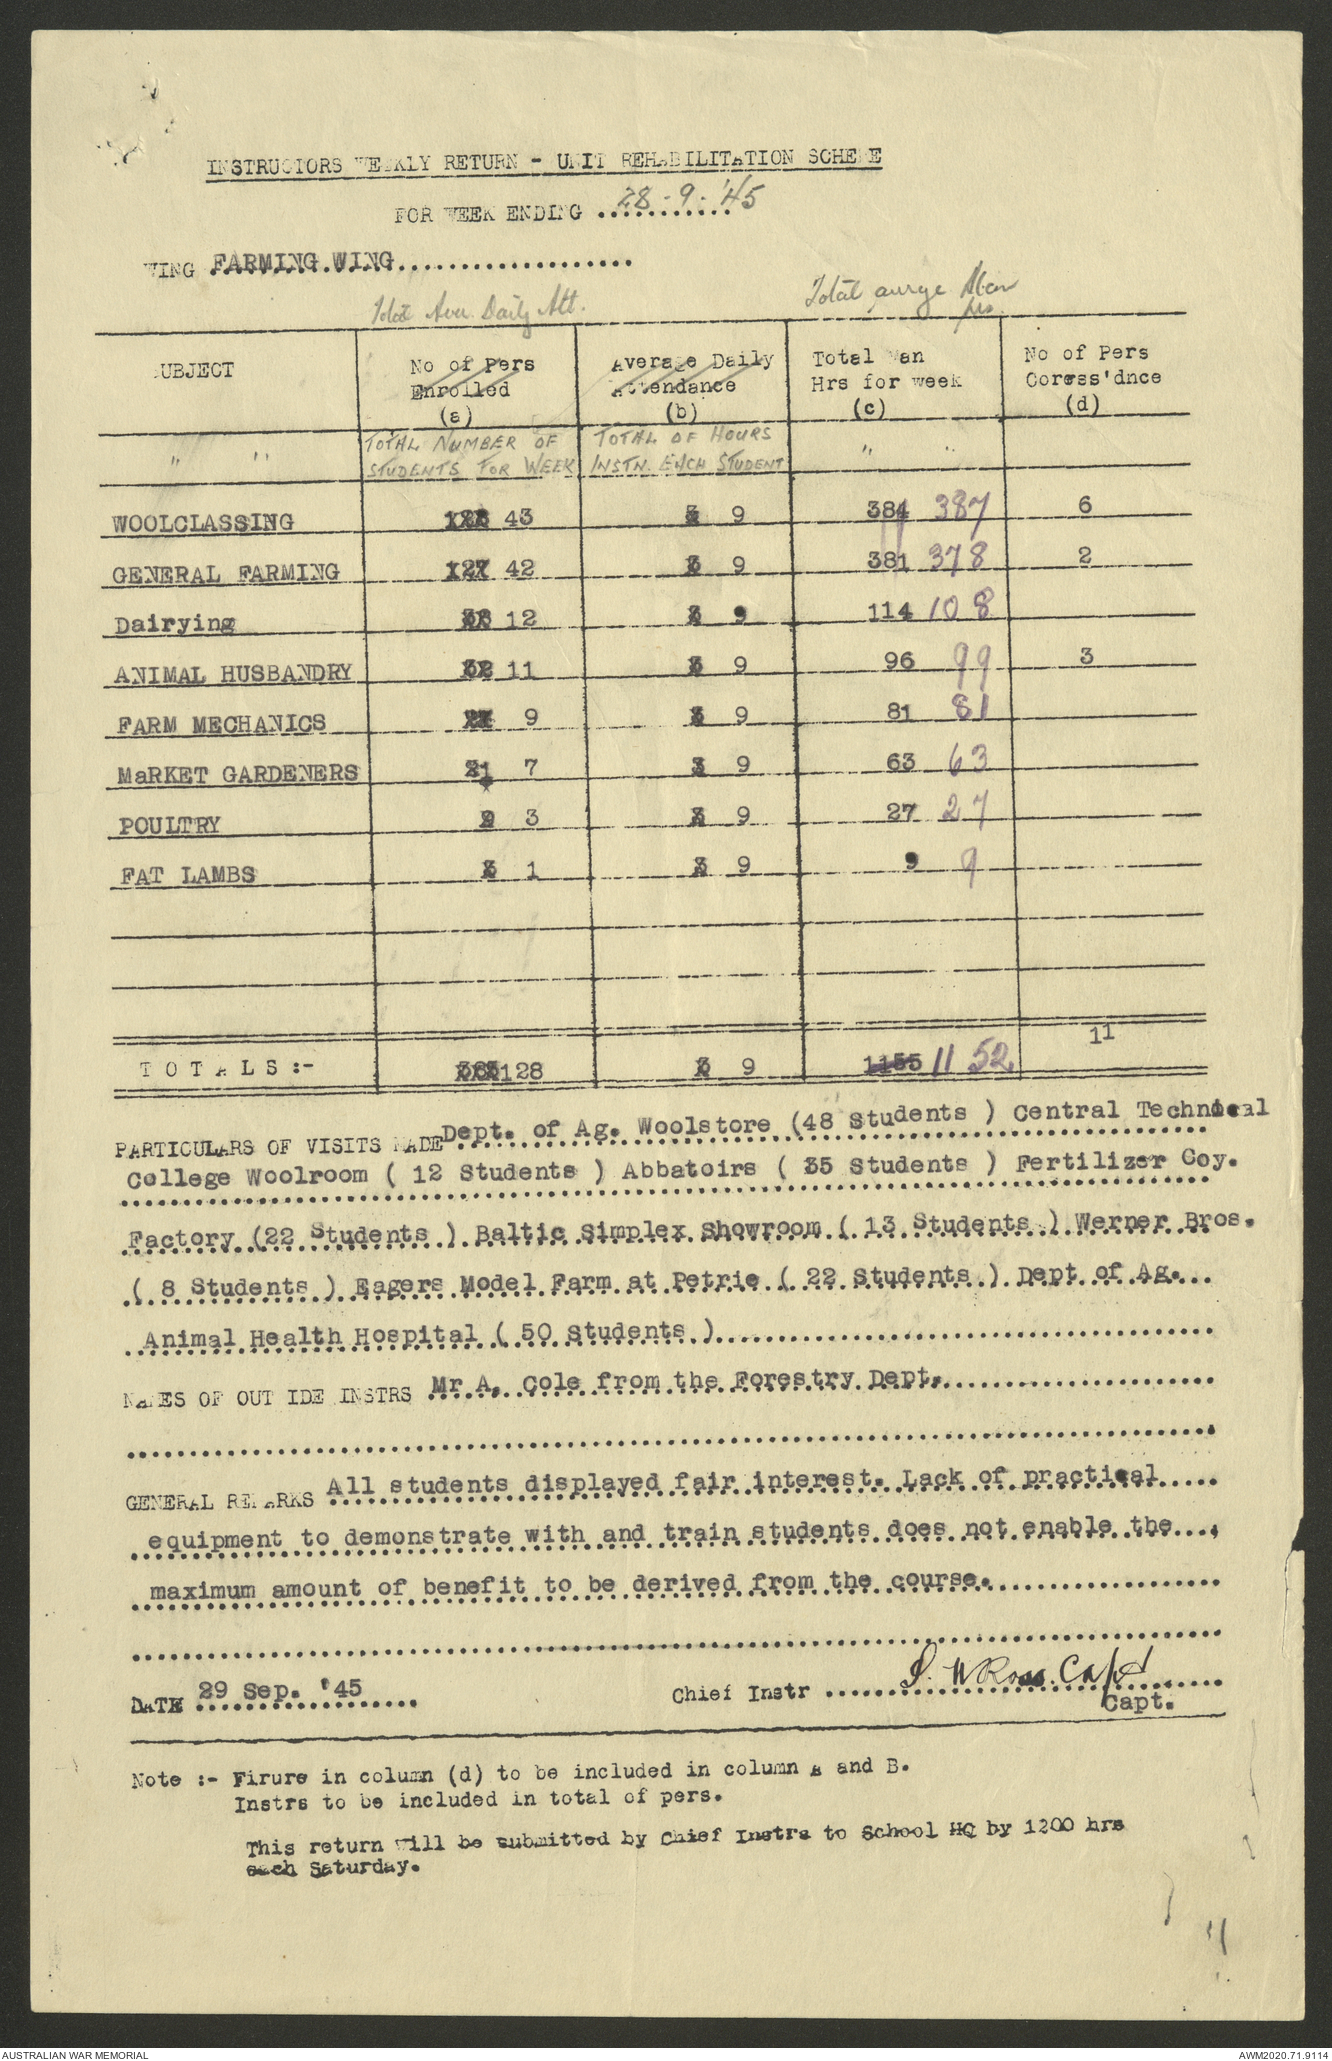 INSTRUCTORS WEEKLY RETURN - UNIT REHABILITATION SCHEME
FOR WEEK ENDING 28-9-'45
WING FARMING WING
Total Aver Daily Att. Total avrge Man hrs
SUBJECT No of Pers Enrolled (a) Average Daily Attendance (b) Total Man Hrs for week (c) No of Pers Coress'dnce (d)
" " TOTAL NUMBER OF STUDENTS FOR WEEK TOTAL OF HOURS INSTN. EACH STUDENT " "
WOOLCLASSING 128 43 3 9 384 387 6
GENERAL FARMING 127 42 3 9 381 378 2
Dairying 38 12 3 9 114 108
ANIMAL HUSBANDRY 32 11 3 9 96 99 3
FARM MECHANICS 27 9 3 9 81 81
MaRKET GARDENERS 21 7 3 9 63 63
POULTRY 9 3 3 9 27 27
FAT LAMBS 3 1 3 9 9 9
TOTALS:- 128 3 9 1155 1152 11
PARTICULARS OF VISITS MADE Dept. of Ag. Woolstore (48 Students ) Central Technical
College Woolroom ( 12 Students ) Abbatoirs ( 35 Students ) Fertilizer Coy.
Factory (22 Students ) Baltic Simplex Showroom ( 13 Students ) Werner Bros.
( 8 Students ) Eagers Model Farm at Petrie ( 22 Students ) Dept of Ag.
Animal Health Hospital ( 50 Students )
NAMES OF OUTSIDE INSTRS Mr A. Cole from the Forestry Dept.
GENERAL REMARKS All students displayed fair interest. Lack of practical
equipment to demonstrate with and train students does not enable the
maximum amount of benefit to be derived from the course.
DATE 29 Sep. '45 Chief Instr W Ross. Capt
Capt.
Note :- Firure in column (d) to be included in column A and B.
Instrs to be included in total of pers.
This return will be submitted by Chief Instrs to School HQ by 1200 hrs
each Saturday.
AUSTRALIAN WAR MEMORIAL AWM2020.71.9114